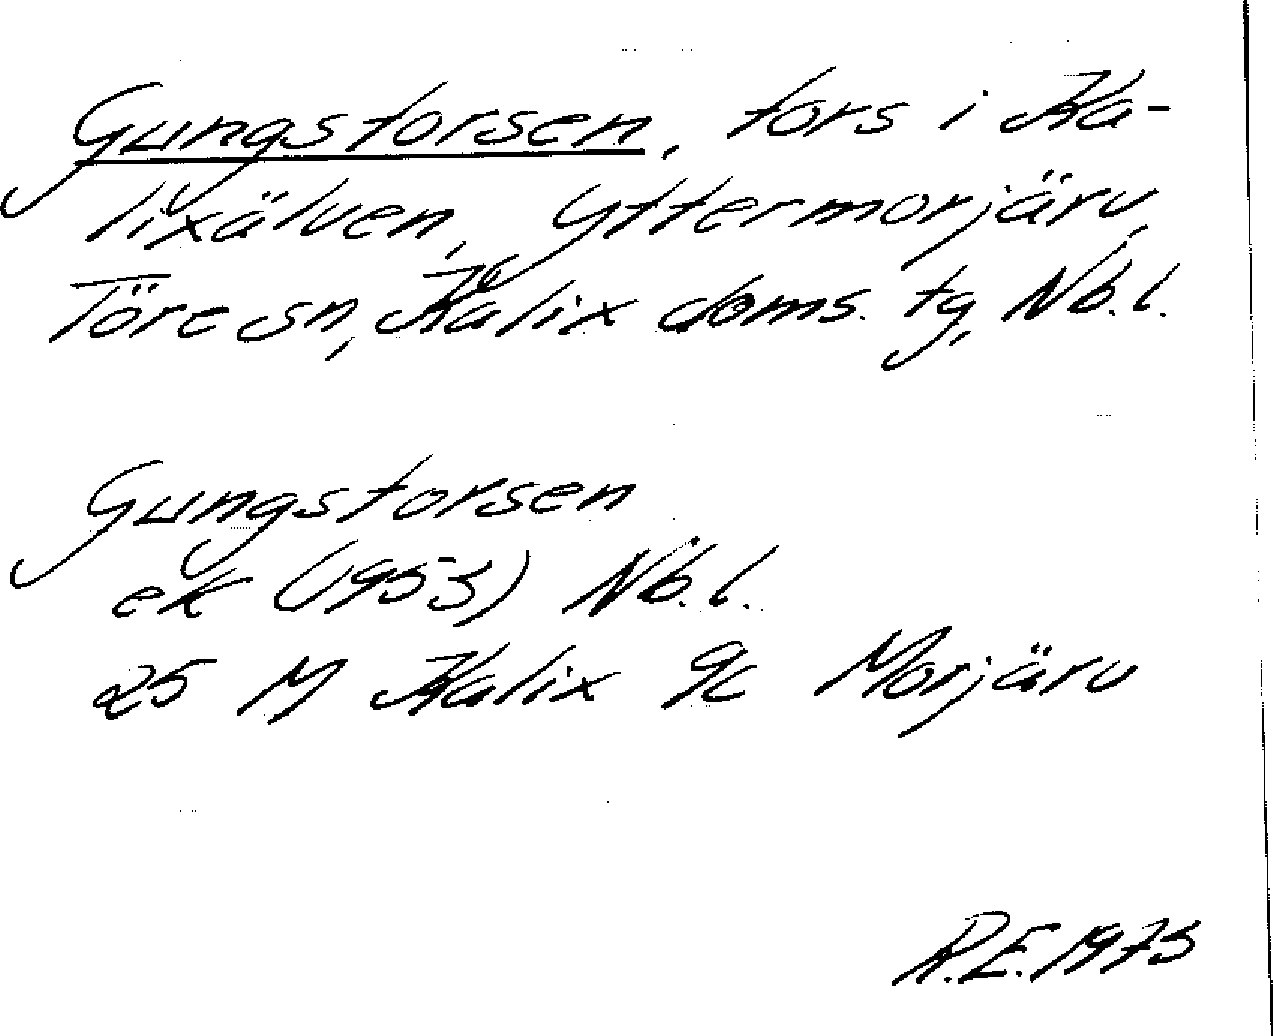 Gungsforsen, fors i Ka-
lixälven, Yttermorjärv,
Töre sn, Kalix doms. tg, Nb. l.
Gungsforsen
ek (1953) Nb. l.
25 M Kalix 9c Morjärv
R.E. 1975